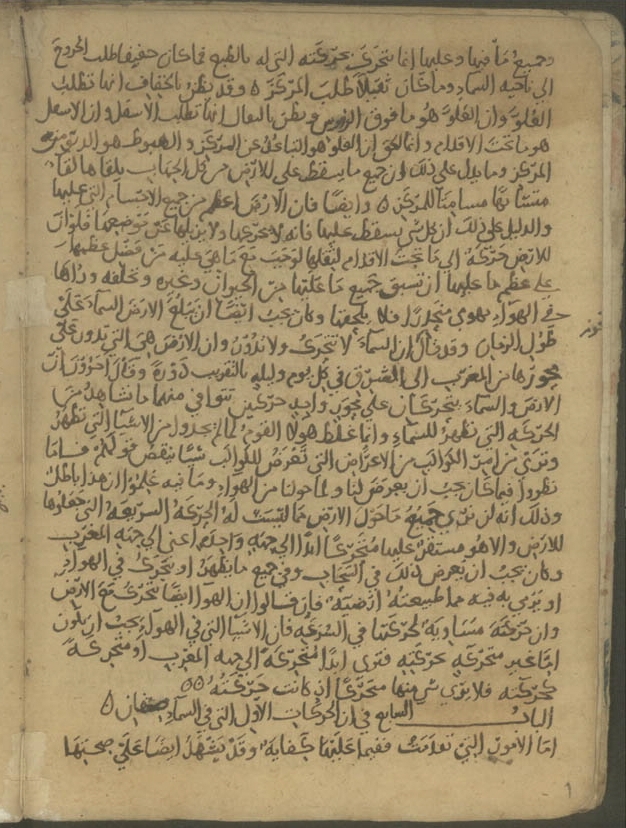 وجميع ما فيها وعليها انما يتحرك بحركته التي له بالطبع فما كان خفيفا طلب الخروج
الى ناحيه السماء وما كان ثقيلا طلب المركز وقد يظن بالخفاف انها تطلب
العلو وان العلو هو ما فوق الروس ويظن بالثقال انها تطلب الاسفل وان الاسفل
هو ما تحت الاقدام وانما الحق ان العلو هو التباعد عن المركز والهبوط هو الدنو من
المركز ومما يدل على ذلك ان جميع ما يسقط على الارض من كل الجهات يلقاها لقاء
متشابها مسامتا للمركز وايضا فان الارض اعظم من جميع الاجسام التي عليها
والدليل على ذلك ان كل شي يسقط عليها فانه لا يحركها ولا يزيلها عن موضعها فلو ان
للارض حركة الى ما تحت الاقدام لثقلها لوجب مع ما هي عليه من فضل عظمها
على عظم ما عليها ان تسبق جميع ما عليها من الحيوان وغيره وتخلفه وراها
في الهواء يهوي منحدرا فلا يلحقها وكان يجب ايضا ان تبلغ الارض السماء على
طول الزمان وقد قال ان السماء لا تتحرك ولا تدور وان الارض هي التي تدور على
محورها من المغرب الى المشرق في كل يوم وليله بالتقريب دورة وقال اخرون ان
الارض والسماء يتحركان على محور واحد حركتين تتوافى منهما ما نشاهد من
الحركه التي تظهر للسماء وانما غلط هولا القوم لما لم يجدوا من الاشيا التي تظهر
وترى من امر الكواكب من الاعراض التي تعرض للكواكب شيا ينقض قولهم فاما
نظروا فيما كان يجب ان يعرض لنا ولما حولنا من الهواء وما فيه علموا ان هذا باطل
وذلك انه لن نرى جميع ما حول الارض مما ليست له الحركة السريعه التي جعلوها
للارض والا هو مستقر عليها متحركا ابدا الى جهه واحده اعني الى جهه المغرب
وكان يجب ان يعرض ذلك في السحاب وفي جميع ما يظهر او يتحرك في الهواء
او يرمى به فيه مما طبيعته ارضية فان قالوا ان الهوا ايضا يتحرك مع الارض
وان حركته مساوية لحركتها في السرعه فان الاشيا التي في الهواء يجب ان يكون
اما غير متحركه بحركته فترى ابدا متحركة الى جهه المغرب او متحركة
بحركته فلا يرى شي منها متحركا اذ كانت حركته
الباب السابع في ان الحركات الاول التي في السماء صنفان
اما الامور التي تقدمت ففيما عليها كفاية وقد يشهد ايضا على صحتها